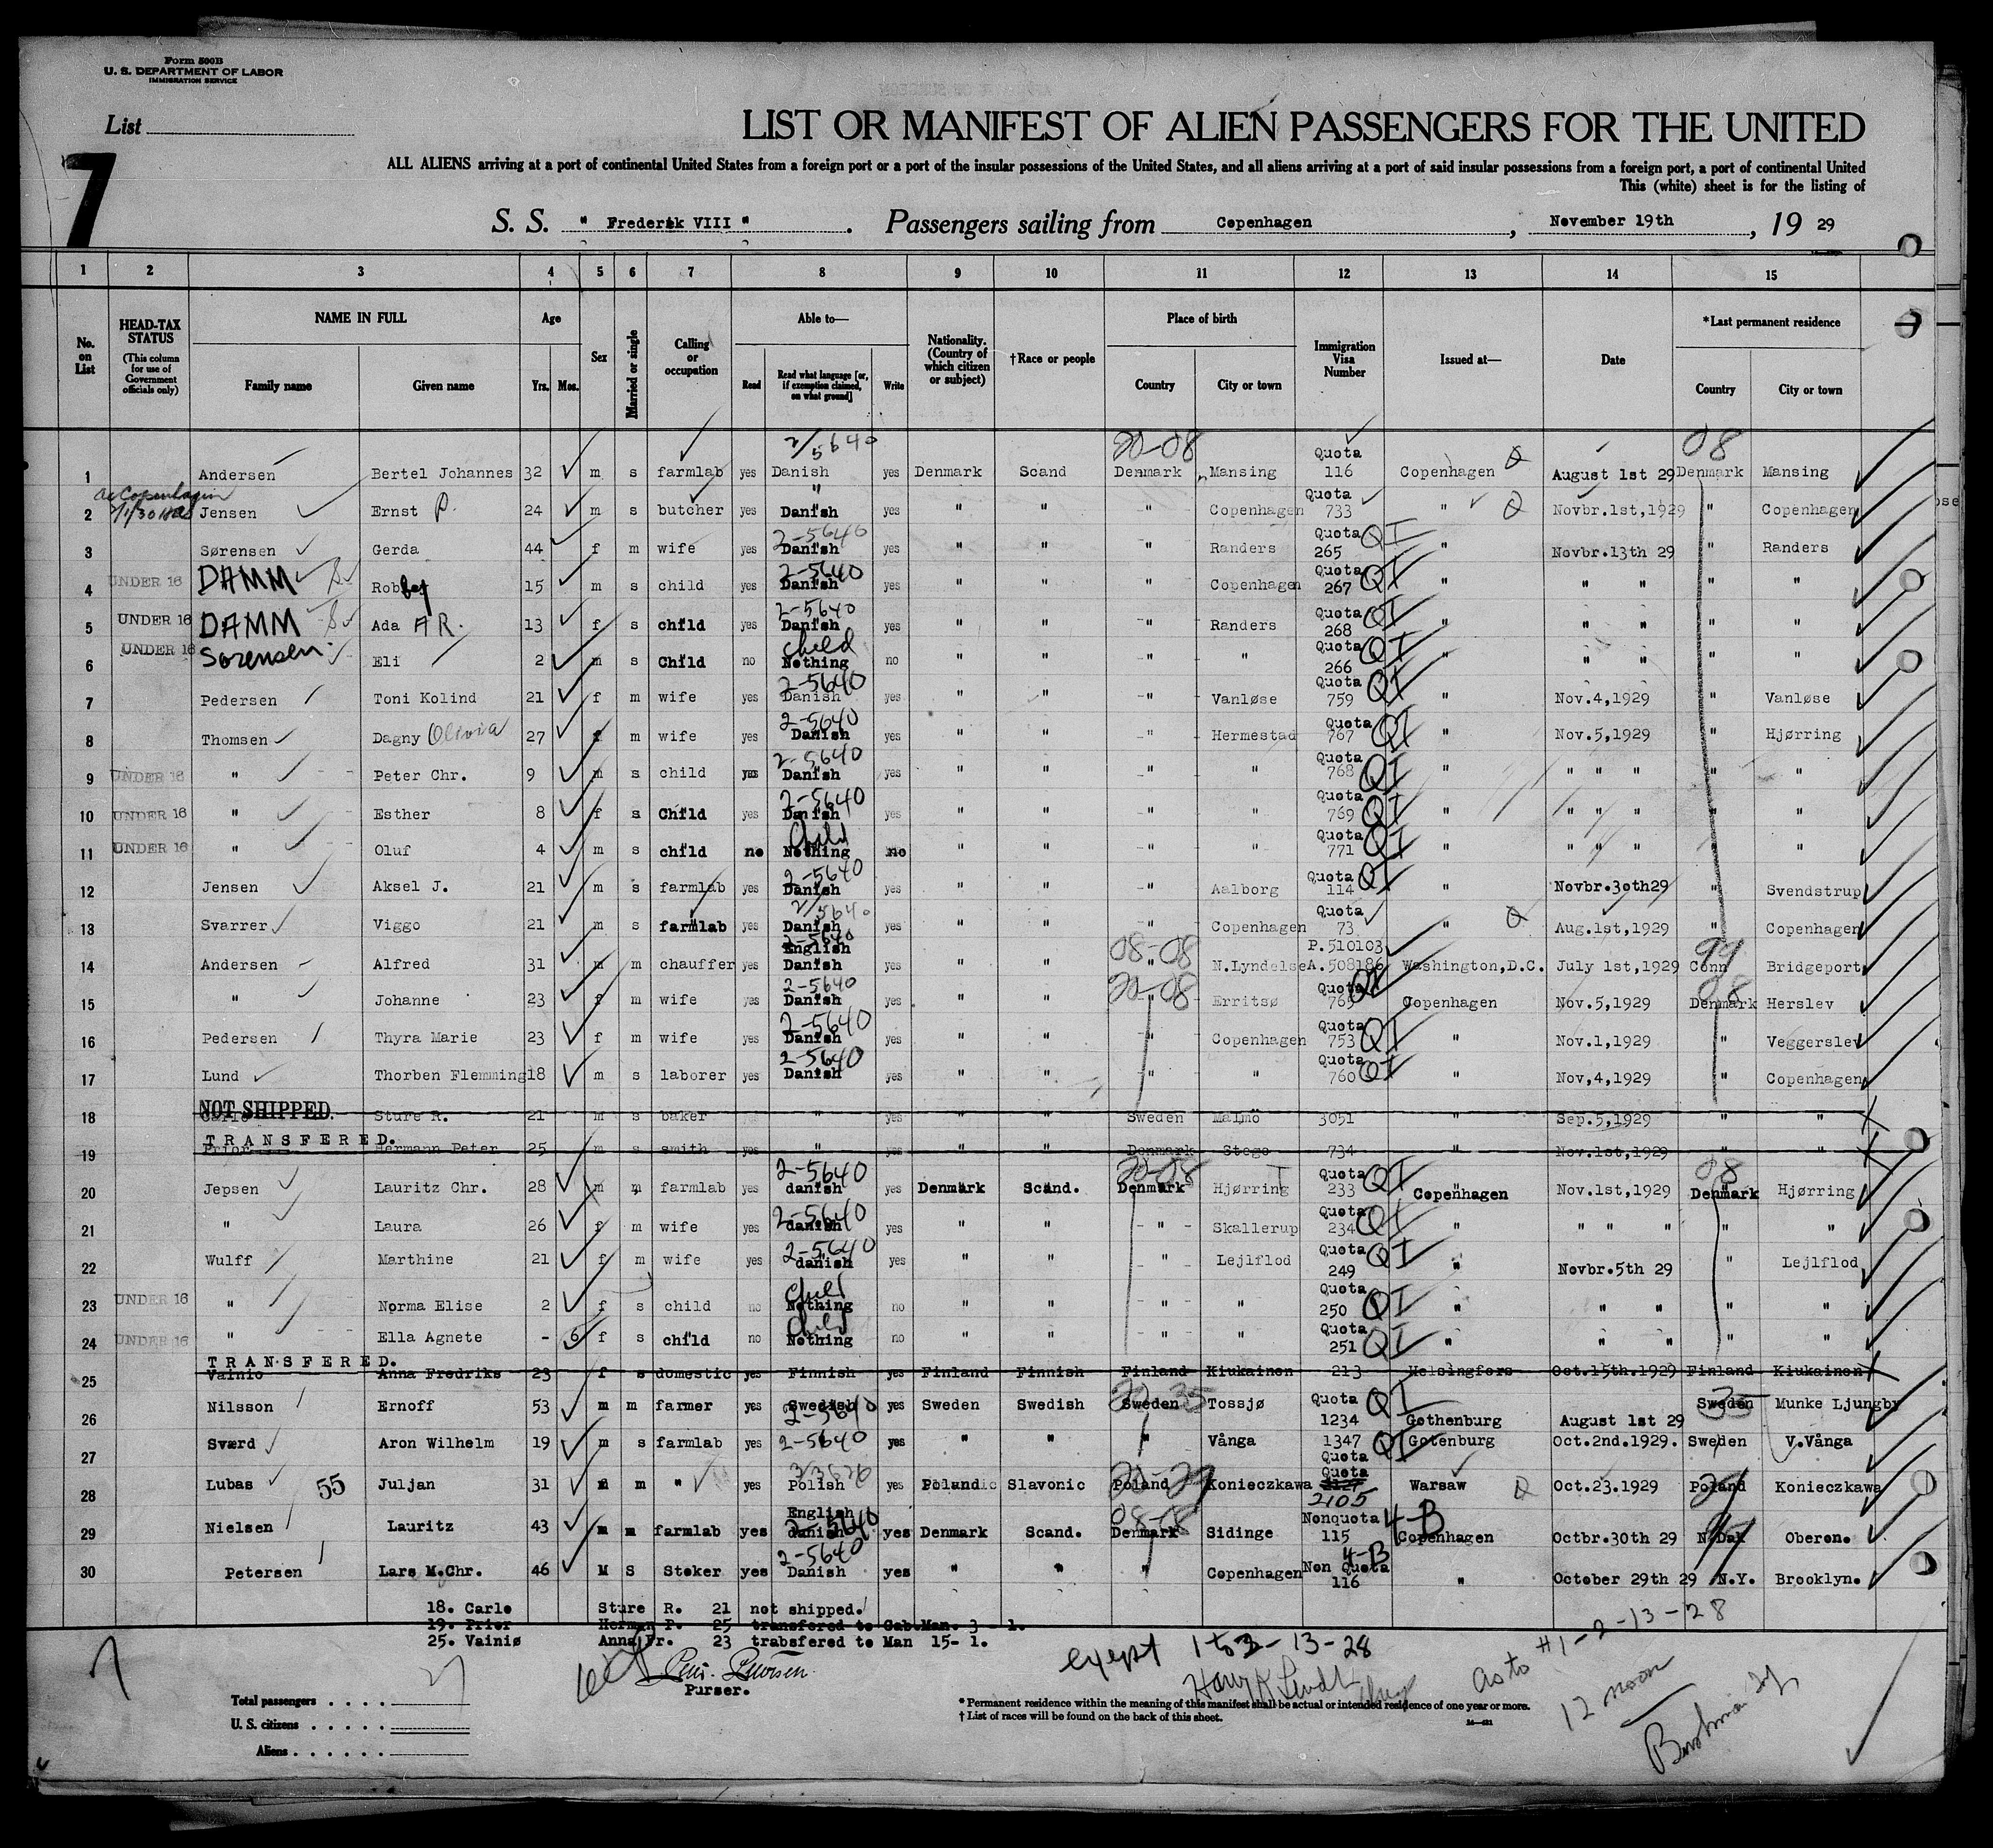 Form 500B
U. S. DEPARTMENT OF LABOR
IMMIGRATION SERVICE
List
7
LIST OR MANIFEST OF ALIEN PASSENGERS FOR THE UNITED
ALL ALIENS arriving at a port of continental United States from a foreign port or a port of the insular possessions of the United States, and all aliens arriving at a port of said insular possessions from a foreign port, a port of continental United
This (white) sheet is for the listing of
S. S. " Frederik VIII ". Passengers sailing from Copenhagen, November 19th, 19 29
1 2 3 4 5 6 7 8 9 10 11 12 13 14 15
No. on List
HEAD-TAX STATUS (This column for use of Government officials only)
NAME IN FULL
Family name Given name
Age
Yrs. Mos.
Sex
Married or single
Calling or occupation
Able to—
Read Read what language [or, if exemption claimed, on what ground] Write
Nationality. (Country of which citizen or subject)
†Race or people
Place of birth
Country City or town
Immigration Visa Number
Issued at—
Date
*Last permanent residence
Country City or town
2/5640 20-08 Quota 08
1 Andersen Bertel Johannes 32 m s farmlab yes Danish yes Denmark Scand Denmark Mansing 116 Copenhagen August 1st 29 Denmark Mansing
Quota
2 Jensen Ernst P. 24 m s butcher yes Danish yes " " " Copenhagen 733 " Novbr.1st,1929 " Copenhagen
2-5640 Quota QI
3 Sørensen Gerda 44 f m wife yes Danish yes " " -" Randers 265 " Novbr.13th 29 " Randers
2-5640 Quota
4 UNDER 16 DAMM Robbey 15 m s child yes Danish yes " " -" Copenhagen 267 QI " " " " "
2-5640 Quota
5 UNDER 16 DAMM Ada A R. 13 f s child yes Danish yes " " -" Randers 268 QI " " " " "
child Quota
6 UNDER 16 Sørensen Eli 2 m s Child no Nothing no " " -" " 266 QI " " " " "
2-5640 Quota
7 Pedersen Toni Kolind 21 f m wife yes Danish yes " " -" Vanløse 759 QI " Nov.4,1929 " Vanløse
2-5640 Quota
8 Thomsen Dagny Olivia 27 f m wife yes Danish yes " " -" Hermestad 767 QI " Nov.5,1929 " Hjørring
2-5640 Quota
9 UNDER 16 " Peter Chr. 9 m s child yes Danish yes " " -" " 768 QI " " " " " "
2-5640 Quota
10 UNDER 16 " Esther 8 f s Child yes Danish yes " " -" " 769 QI " " " " " "
child Quota
11 UNDER 16 " Oluf 4 m s child no Nothing no " " -" " 771 QI " " " " " "
2-5640 Quota
12 Jensen Aksel J. 21 m s farmlab yes Danish yes " " -" Aalborg 114 QI " Novbr.30th29 " Svendstrup
2/5640 Quota
13 Svarrer Viggo 21 m s farmlab yes Danish yes " " -" Copenhagen 73 " Aug.1st,1929 " Copenhagen
English 08-08 P.510103 99
14 Andersen Alfred 31 m m chauffer yes Danish yes " " " N.Lyndelse A.508186 Washington,D.C. July 1st,1929 Conn Bridgeport
2-5640 20-08 Quota 08
15 " Johanne 23 f m wife yes Danish yes " " " Erritsø 765 Copenhagen Nov.5,1929 Denmark Herslev
2-5640 Quota
16 Pedersen Thyra Marie 23 f m wife yes Danish yes " " -" Copenhagen 753 QI " Nov.1,1929 " Veggerslev
2-5640 Quota
17 Lund Thorben Flemming 18 m s laborer yes Danish yes " " " " 760 QI " Nov,4,1929 " Copenhagen
NOT SHIPPED.
18 Carlo Sture R. 21 m s baker " yes " " Sweden Malmö 3051 " Sep.5,1929 " "
TRANSFERED.
19 Prior Hermann Peter 25 m s smith yes " yes " " Denmark Stege 734 " Nov.1st,1929 " "
2-5640 20-08 Quota 08
20 Jepsen Lauritz Chr. 28 m m farmlab yes danish yes Denmark Scand. Denmark Hjørring 233 QI Copenhagen Nov.1st,1929 Denmark Hjørring
2-5640 Quota
21 " Laura 26 f m wife yes danish yes " " - " - Skallerup 234 QI " " " " " "
2-5640 Quota
22 Wulff Marthine 21 f m wife yes danish yes " " - " Lejlflod 249 QI " Novbr.5th 29 " Lejlflod
child Quota
23 UNDER 16 " Norma Elise 2 f s child no Nothing no " " - " - " 250 QI " " " " "
child Quota
24 UNDER 16 " Ella Agnete - 6 f s child no Nothing no " " - " - " 251 QI " " " " "
TRANSFERED.
25 Vainio Anna Fredriks 23 f s domestic yes Finnish yes Finland Finnish Finland Kiukainen 213 Helsingfors Oct.15th.1929 Finland Kiukainen
20 35 Quota QI 35
26 Nilsson Ernoff 53 m m farmer yes Swedish 2-5640 yes Sweden Swedish Sweden Tossjø 1234 Gothenburg August 1st 29 Sweden Munke Ljungby
27 Sværd Aron Wilhelm 19 m s farmlab yes 2-5640 yes " " " Vånga 1347 Quota QI Gotenburg Oct.2nd.1929. Sweden V.Vånga
Quota
28 Lubas 55 Juljan 31 m m " yes Polish yes Poland Slavonic Poland Konieczkawa 2105 Warsaw Oct.23.1929 Poland Konieczkawa
English 08-08 Nonquota 4-B
29 Nielsen Lauritz 43 m m farmlab yes danish 2-5640 yes Denmark Scand. Denmark Sidinge 115 Copenhagen Octbr.30th 29 N.Dak Oberon.
2-5640 4-B
30 Petersen Lars M.Chr. 46 M S Stoker yes Danish yes " " " Copenhagen Non Quota 116 " October 29th 29 N.Y. Brooklyn.
18. Carlo Sture R. 21 not shipped.
19. Prior Herman P. 25 transfered to Cab.Man. 3 - 1.
25. Vainiø Anna Fr. 23 trabsfered to Man 15- 1.
Purser.
exept 1 to 3-13-28
As to #1-2-13-28
12 noon
27
Total passengers
U. S. citizens
Aliens
* Permanent residence within the meaning of this manifest shall be actual or intended residence of one year or more.
† List of races will be found on the back of this sheet.